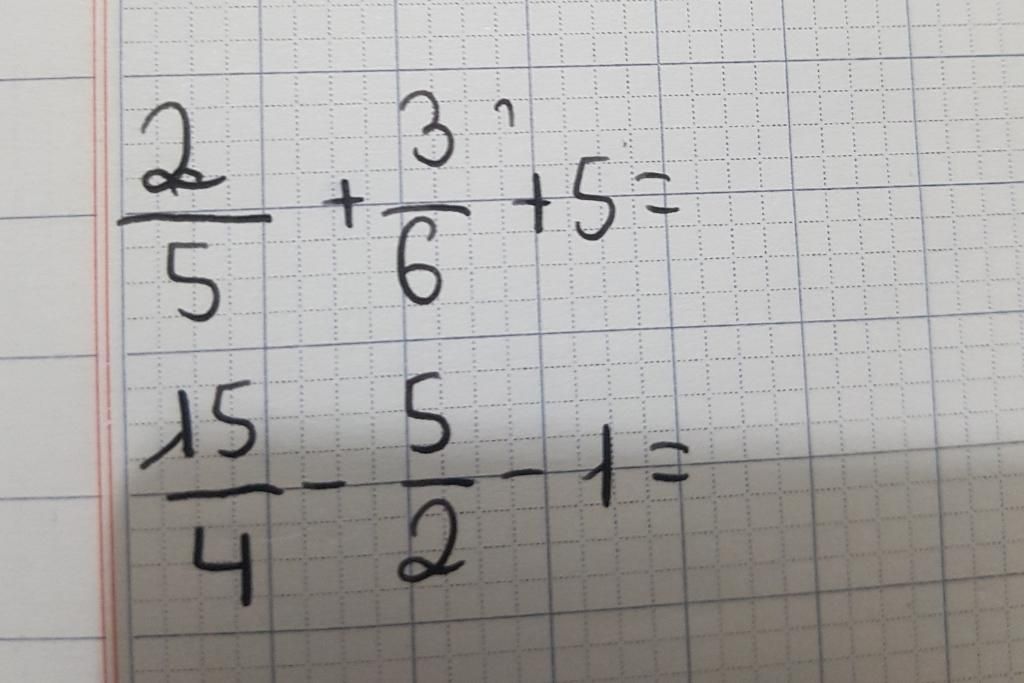 2/5 + 3/6 + 5 =
15/4 - 5/2 - 1 =